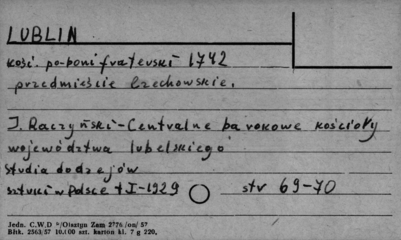 LUBLIN
kość. po-bonifraterski 1742
przedmieście Czechowskie.
J. Raczyński-Centralne barokowe kościoły
województwa lubelskiego
studia do dziejów
sztuki w Polsce t I-1929 str 69-70
Jedn. C.W.D /Olsztyn Zam 2776 /on/ 57
Błtk. 2563/57 10.100 szt. karton kl. 7 g 220,